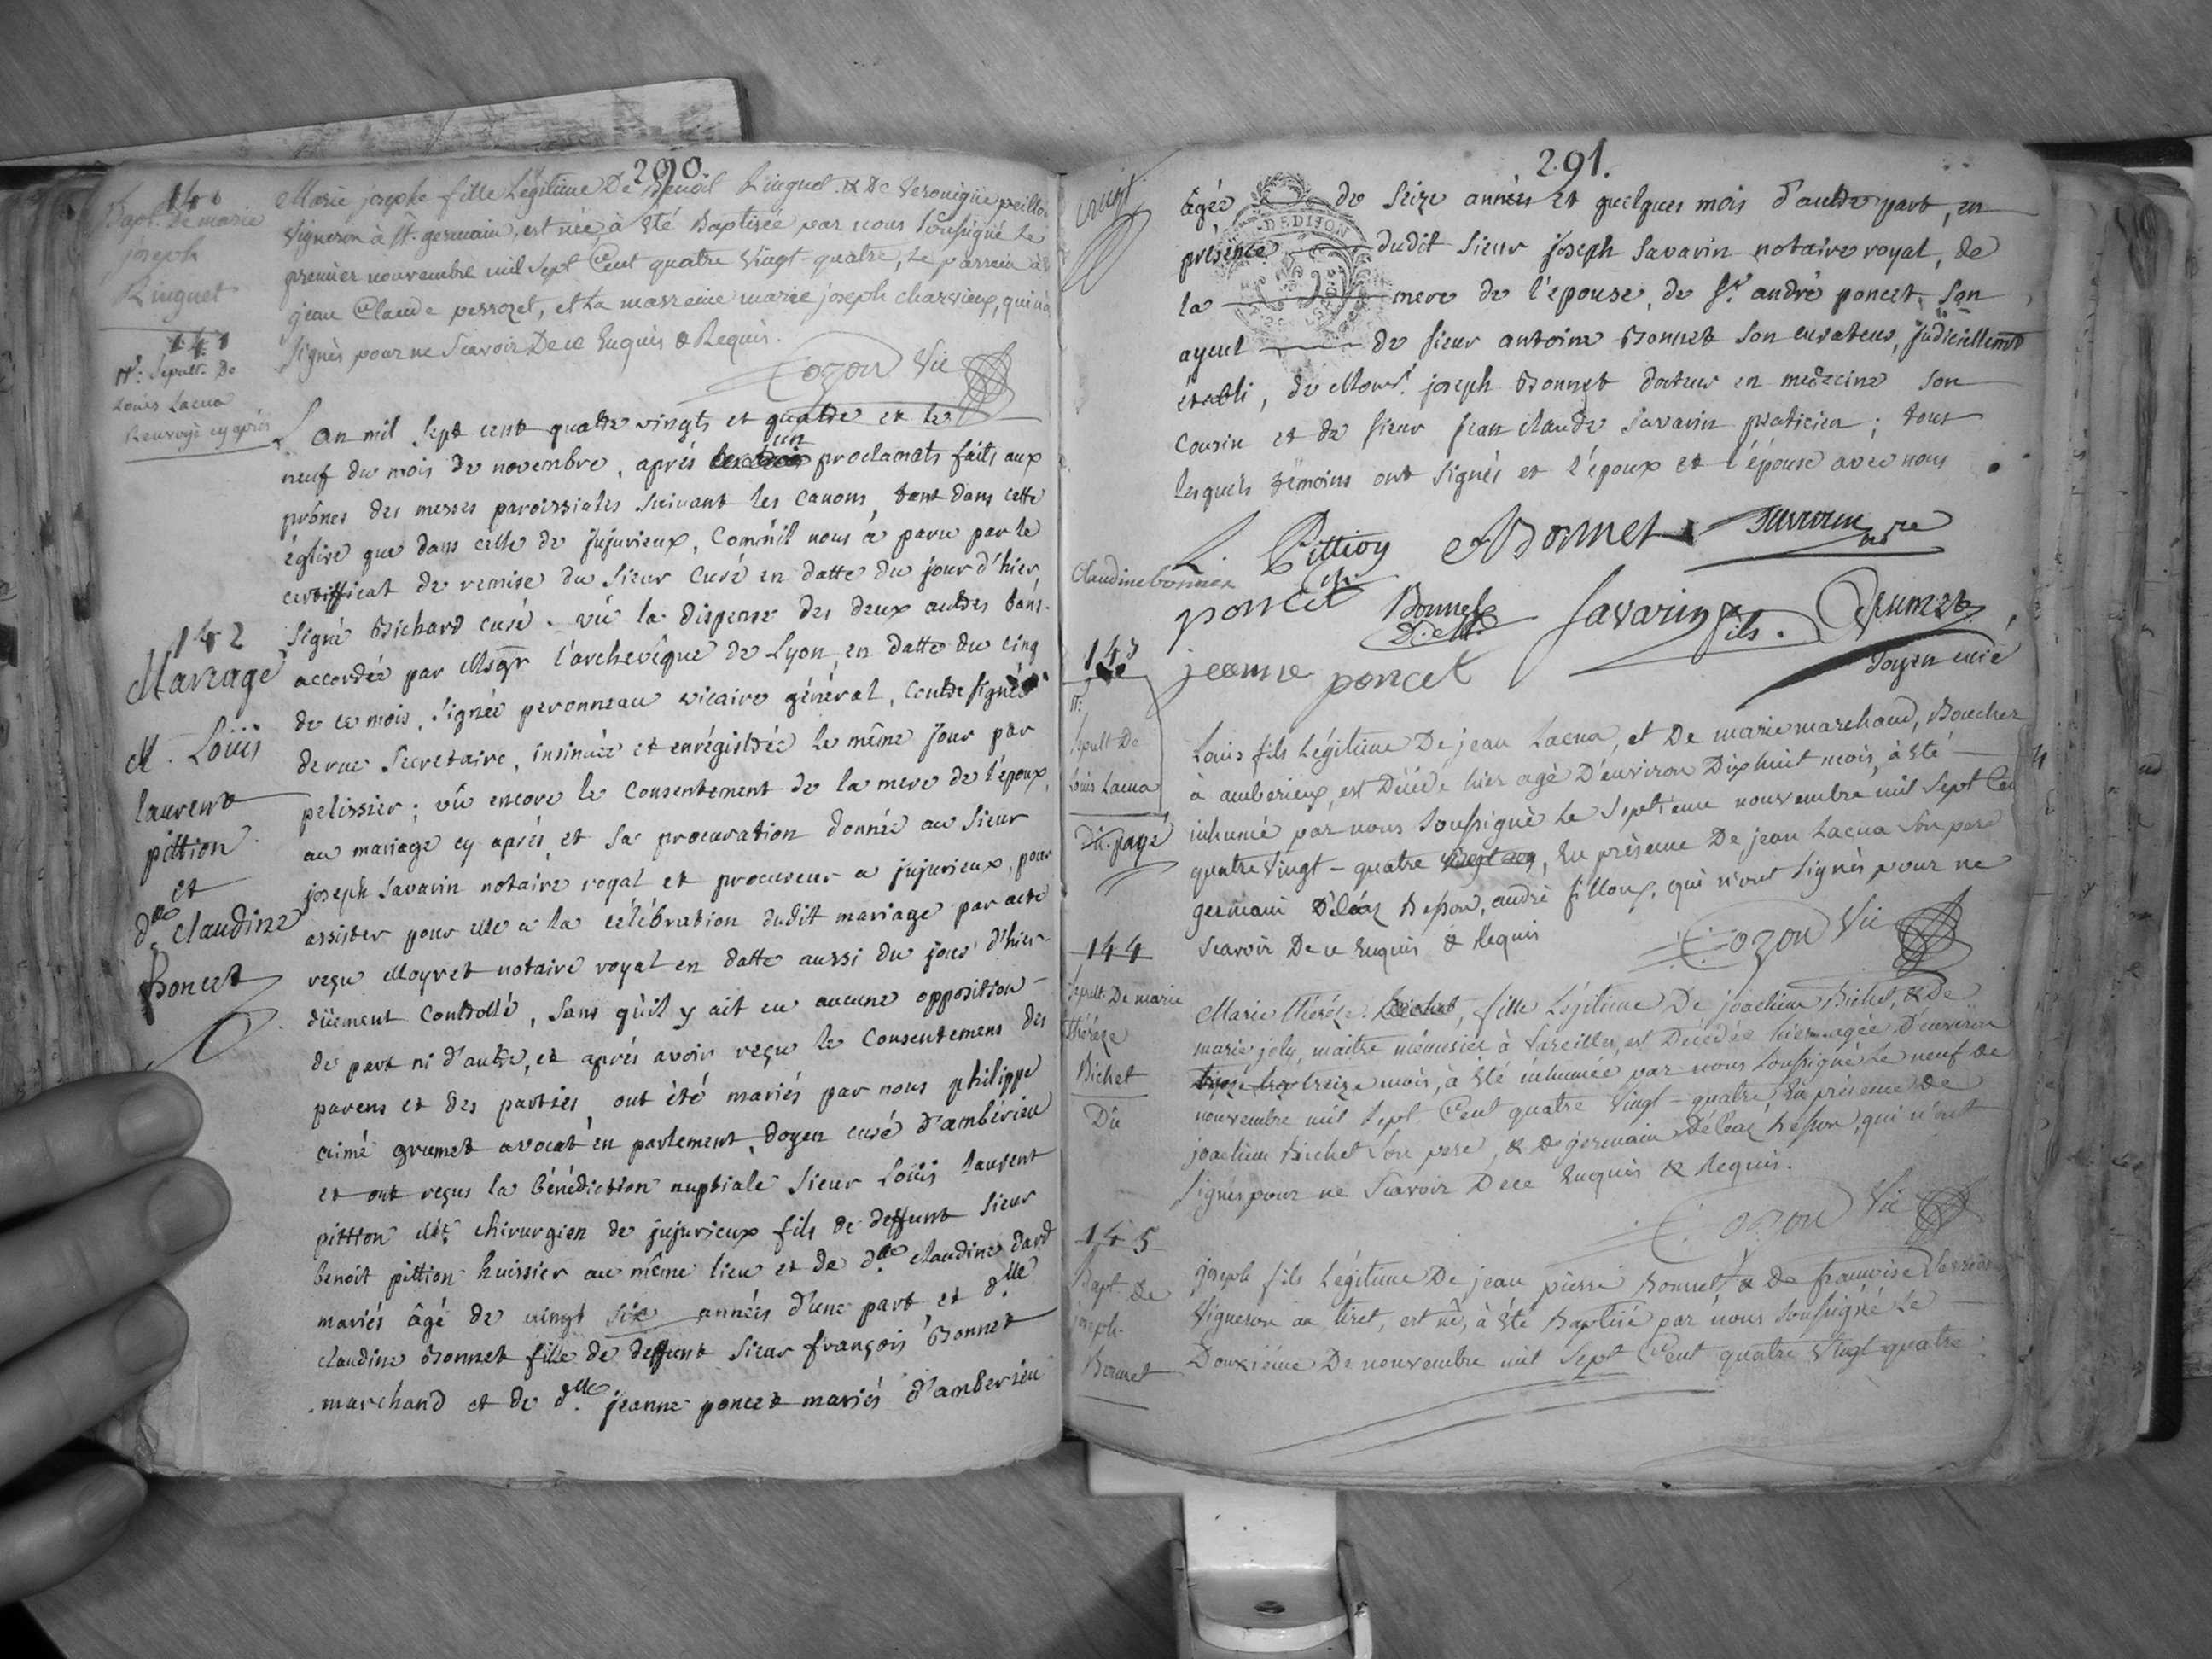 290.
140
Bapt. De marie
joseph
Ringuet
Marie josephe fille Légitime De Benoit Ringuet & De Veronique peillon
Vigneron à St. germain, est née, à été Baptisée par nous soussigné Le
premier novembre mil Sept Cent quatre Vingt-quatre, Le parrain a été
jean Claude perrozet, et La marreine marie joseph charvieux, qui n'ont
signés pour ne Scavoir De ce Enquis & Requis.
Cozon Vic
141
Nt: Sepult. De
Louis Lacua
Renvoyé cy après
142
Mariage
M. Loüis
laurent
pittion
et
dlle claudine
Bonnet
L'an mil sept cent quatre vingts et quatre et le
neuf du mois de novembre, aprés un proclamats faits aux
prônes des messes paroissiales suivant les canons, tant dans cette
église que dans celle de jujurieux, comm'il nous à paru par le
certifficat de remise du sieur curé en datte du jour d'hier,
signé Bichard curé. vü la dispense des deux autres bans
accordée par Msgr l'archevêque de Lyon, en datte du cinq
de ce mois, signée peronneau vicaire général, contresignée
derue Secretaire, insinuée et enrégistrée le même jour par
pelissier; vü encore le consentement de la mere de l'époux,
au mariage cy aprés, et sa procuration donnée au sieur
joseph savarin notaire royal et procureur a jujurieux, pour
assister pour elle a la célébration dudit mariage par acte
reçu Moyret notaire royal en datte aussi du jour d'hier
düement controllé, sans qu'il y ait eu aucune opposition
de part ni d'autre, et aprés avoir reçu le consentemens des
parens et des parties, ont été mariés par nous philippe
aimé grumet avocat en parlement, doyen curé d'ambérieu
et ont reçus la bénédiction nuptiale sieur Loüis laurent
pittion Me chirurgien de jujurieux fils de deffunt sieur
benoit pittion huissier au même lieu et de dlle claudine dard
mariés âgé de vingt six années d'une part, et dlle
claudine Bonnet fille de deffunt sieur françois Bonnet
marchand et de dlle jeanne poncet mariés d'amberieu
291.
âgée de seize années et quelques mois d'autre part, en
présence dudit sieur joseph savarin notaire royal, de
la mere de l'epouse, de Sr. andré poncet, son
ayeul de sieur antoine Bonnet son curateur, judiciellement
établi, de Monsr. joseph Bonnet docteur en medecine son
cousin et de sieur jean claude savarin praticien; tous
lesquels témoins ont signés et l'époux et l'épouse avec nous
L. Pittion ABonnet Savarin nre
Claudine bonnet
poncet Bonnet D.M. Savarin fils. Grumet
jeanne poncet doyen curé
143
Nt:
Sepult De
Louis Lacua
Dû. payé
Louis fils Légitime De jean Lacua, et De marie marchand, Boucher
à amberieux, est Décédé hier agé D'environ Dixhuit mois, à été
inhumé par nous soussigné Le Septieme novembre mil Sept Cent
quatre Vingt-quatre, En présence De jean Lacua son pere
germain Déléaz Besson, andré filloux, qui n'ont signés pour ne
Scavoir De ce Enquis & Requis
Cozon Vic
144
Sepult. De marie
thérèze
Bichet
Dû
Marie thérèze, fille Légitime De joachim Bichet, & De
marie joly, maitre menusier à Vareilles, est Décédée hier agée D'environ
treize mois, à été inhumée par nous soussigné Le neuf de
novembre mil Sept Cent quatre Vingt-quatre En présence de
joachim Bichet son pere, & De germain Déléaz Besson, qui n'ont
signés pour ne Scavoir De ce Enquis & Requis.
Cozon Vic
145
Bapt. de
joseph
Bonnet
joseph fils Légitime De jean pierre Bonnet, & De françoise
Vigneron au tiret, est né, à été Baptisé par nous soussigné Le
Douxième De novembre mil Sept Cent quatre Vingt quatre